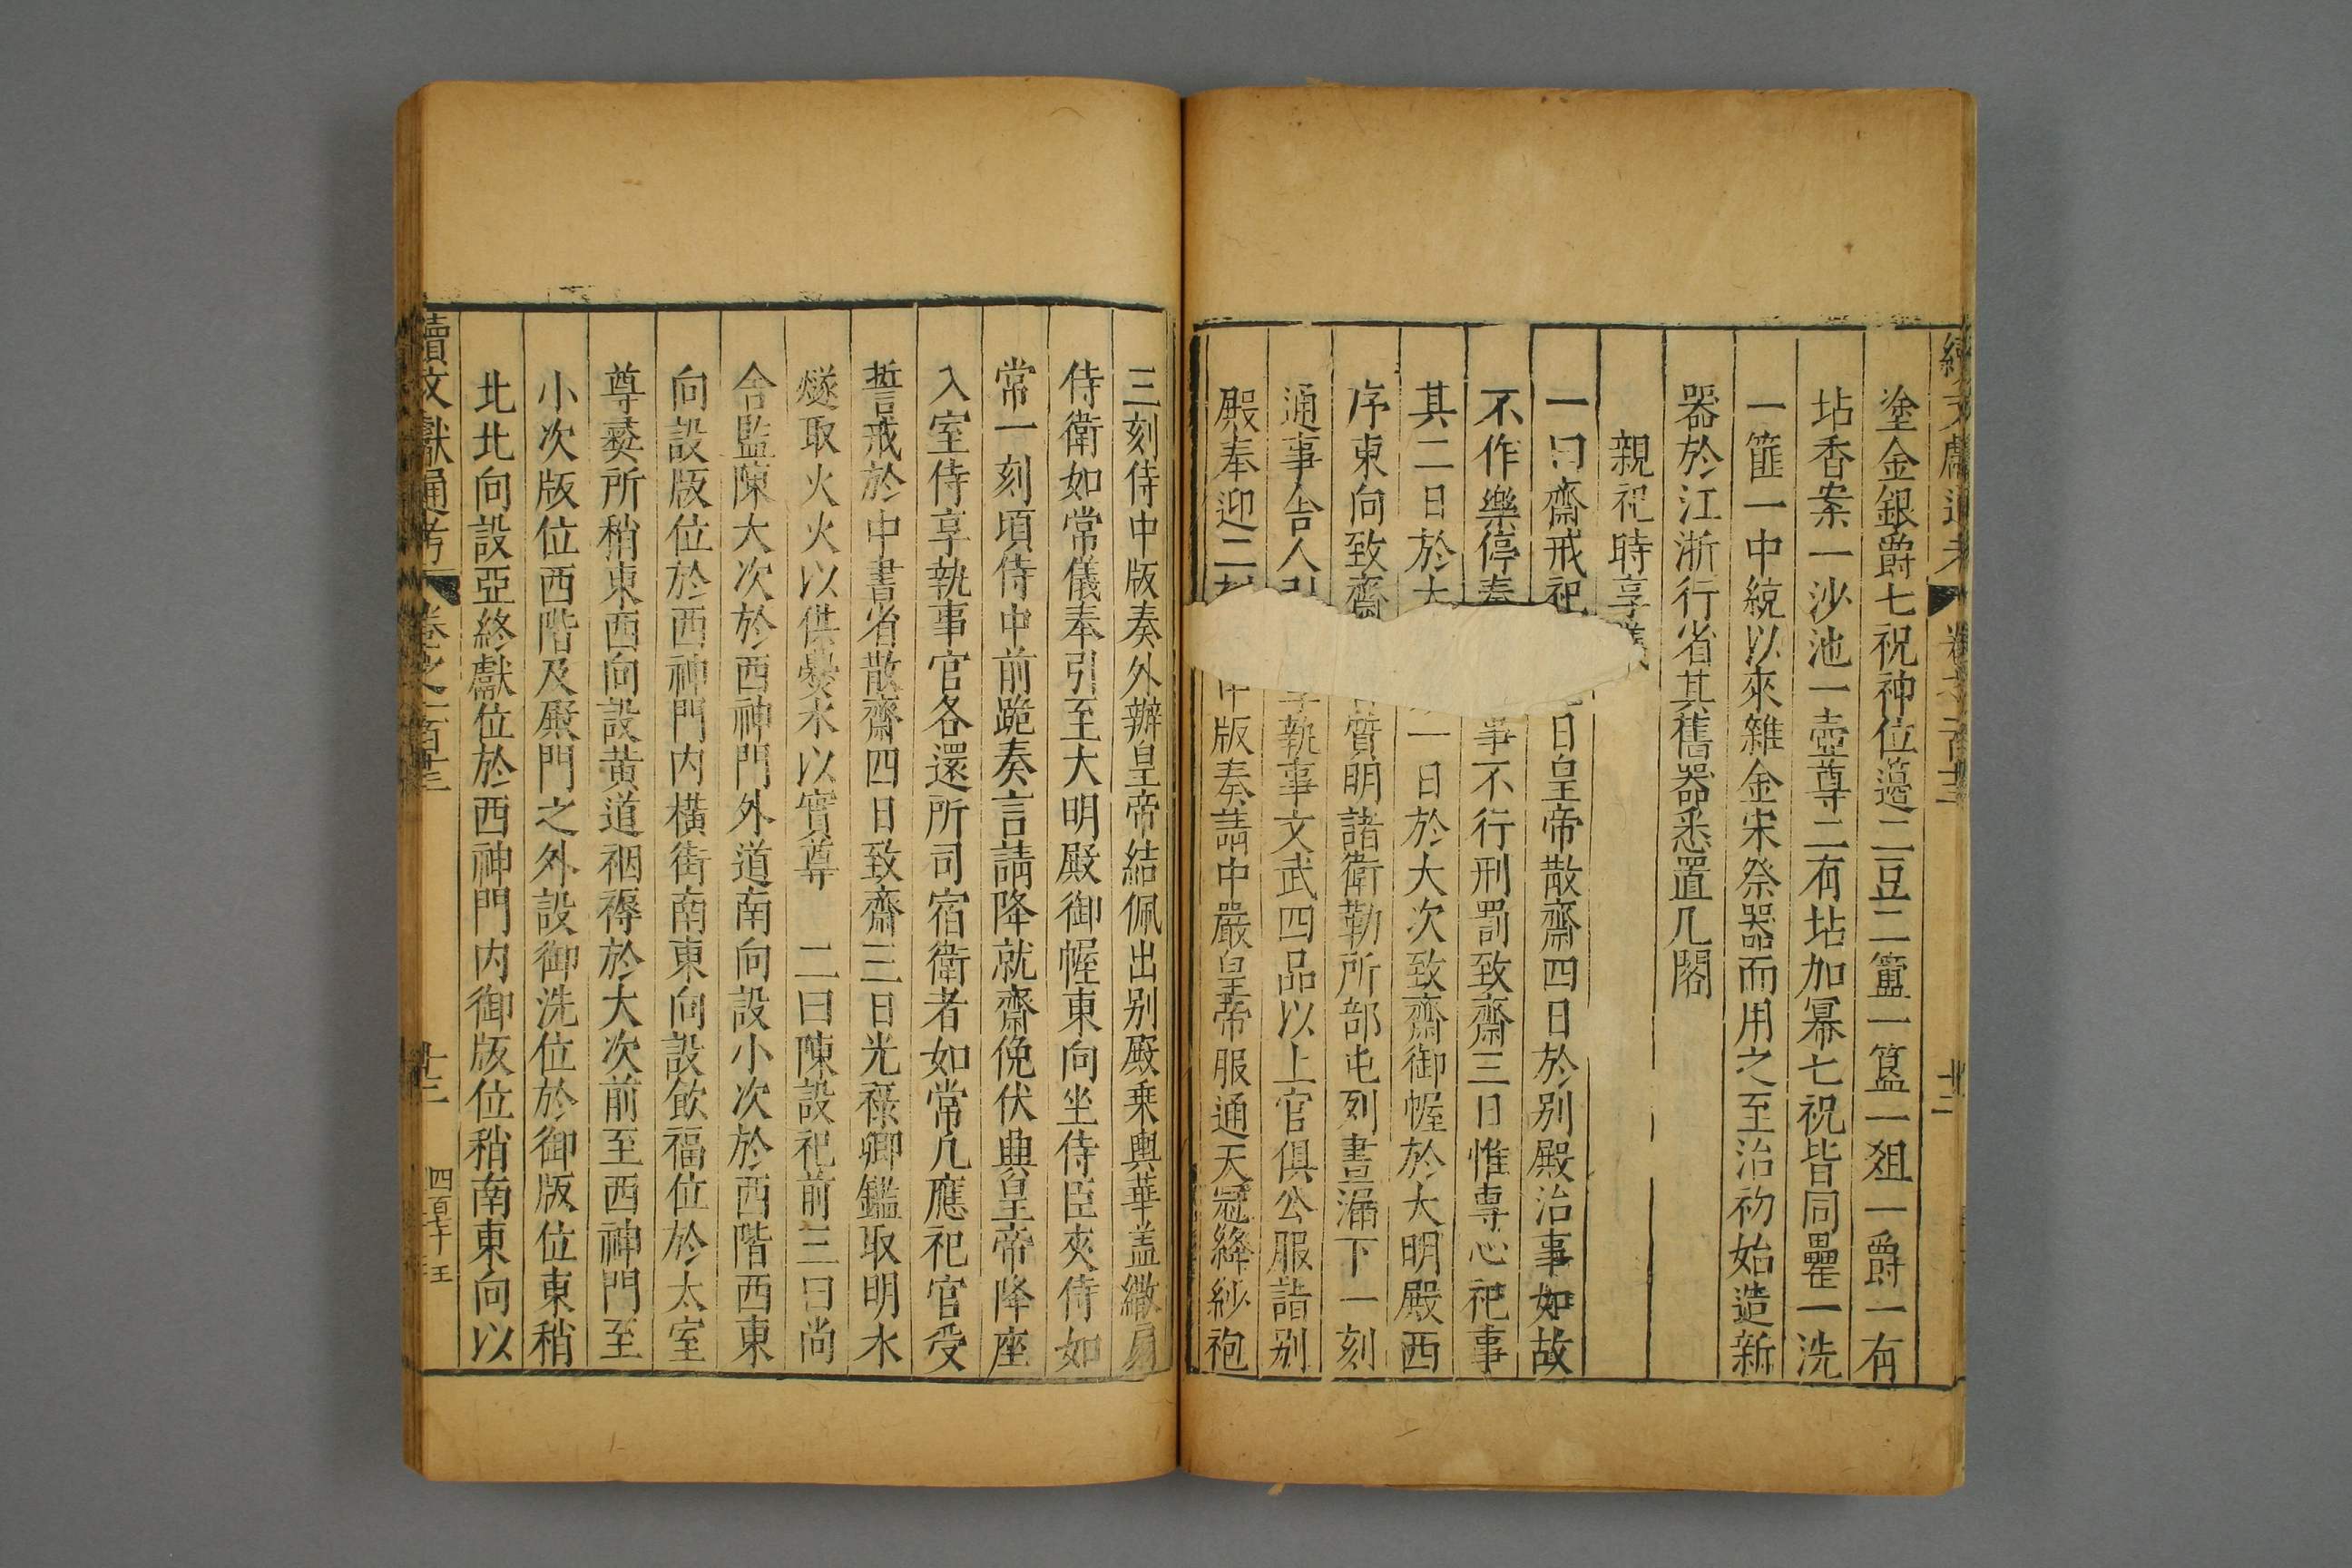 續文獻通考 卷之一百十三 廿二
塗金銀爵七祝神位籩二豆二簠一簋一俎一爵一有
坫香案一沙池一壺尊二有坫加冪七祝皆同罍一洗
一篚一中統以來雜金宋祭器而用之至治初始造新
器於江浙行省其舊器悉置几閣
親祀時享
一曰齋戒祀日皇帝散齋四日於别殿治事如故
不作樂停奏事不行刑罰致齋三日惟專心祀事
其二日於大一日於大次致齋御幄於大明殿西
序東向致齋質明諸衛勒所部屯列晝漏下一刻
通事舍人引享執事文武四品以上官俱公服詣别
殿奉迎二版奏請中嚴皇帝服通天冠絳紗袍
三刻侍中版奏外辦皇帝結佩出别殿乗輿華盖繖扇
侍衛如常儀奉引至大明殿御幄東向坐侍臣夾侍如
常一刻頃侍中前跪奏言請降就齋俛伏興皇帝降座
入室侍享執事官各還所司宿衛者如常凡應祀官受
誓戒於中書省散齋四日致齋三日光祿卿鑑取明水
燧取火火以供爨水以實尊 二曰陳設祀前三日尚
舍監陳大次於西神門外道南向設小次於西階西東
向設版位於西神門内橫街南東向設飲福位於太室
尊彞所稍東西向設黄道裀褥於大次前至西神門至
小次版位西階及殿門之外設御洗位於御版位東稍
北北向設亞終獻位於西神門内御版位稍南東向以
續文獻通考 卷之一百十三 廿三